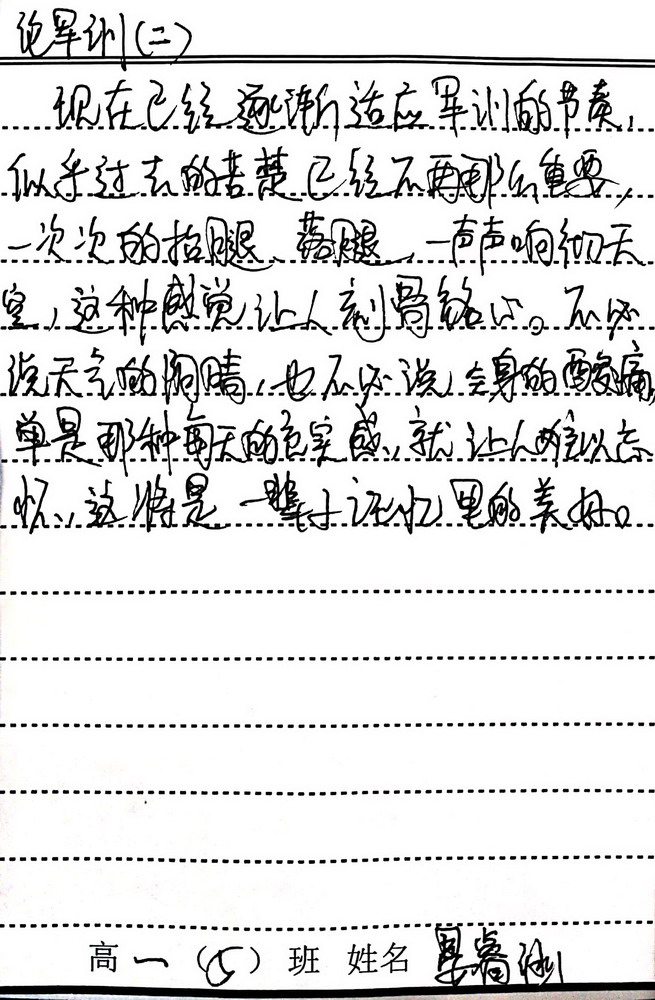 论军训(二)
现在已经逐渐适应军训的节奏,
似乎过去的苦楚已经不再那么重要,
一次次的抬腿、落腿,一声声响彻天
空,这种感觉让人刻骨铭心。不必
说天气的阴晴,也不必说全身的酸痛,
单是那种每天的充实感,就让人难以忘
怀,这将是一辈子记忆里的美好。
高一(5)班 姓名